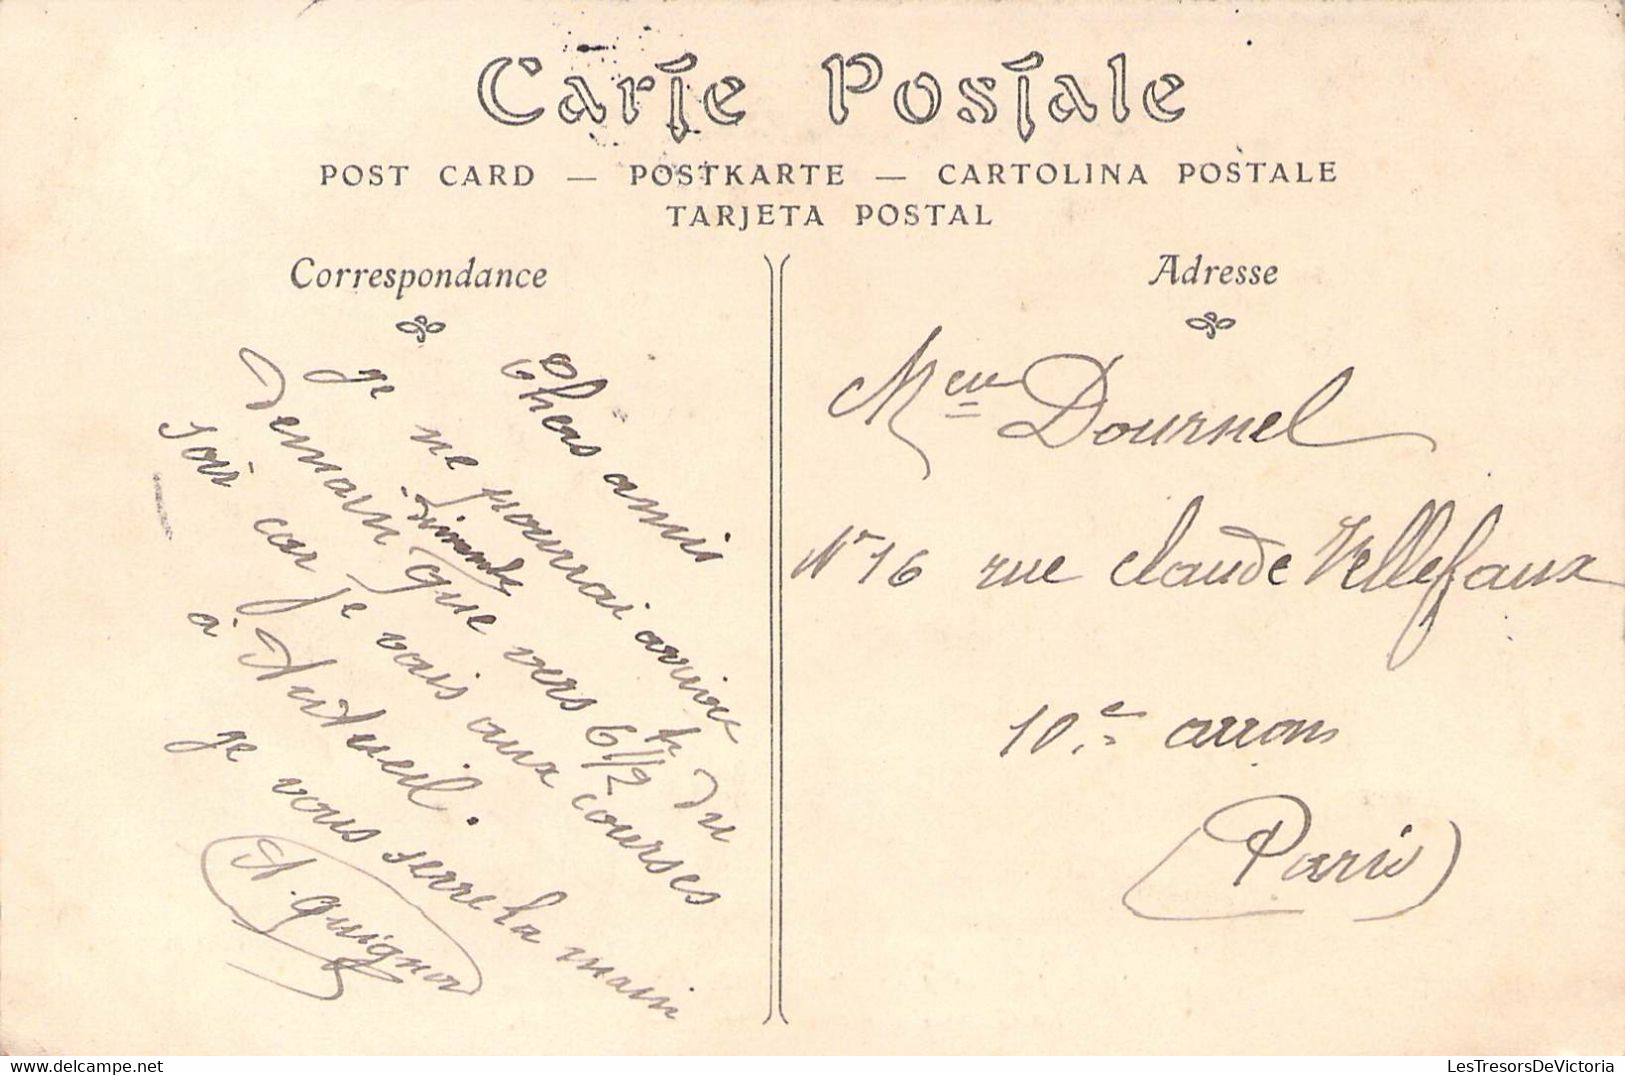 Carte Postale
POST CARD — POSTKARTE — CARTOLINA POSTALE
TARJETA POSTAL
Correspondance
Chers amis
je ne pourrai arriver
dimanche
demain que vers 6 h 1/2 du
soir car je vais aux courses
à Auteuil.
je vous serre la main
A. Guignon
Adresse
Mme Dournel
No 16 rue Claude Vellefaux
10e arrons
(Paris)
LesTresorsDeVictoria